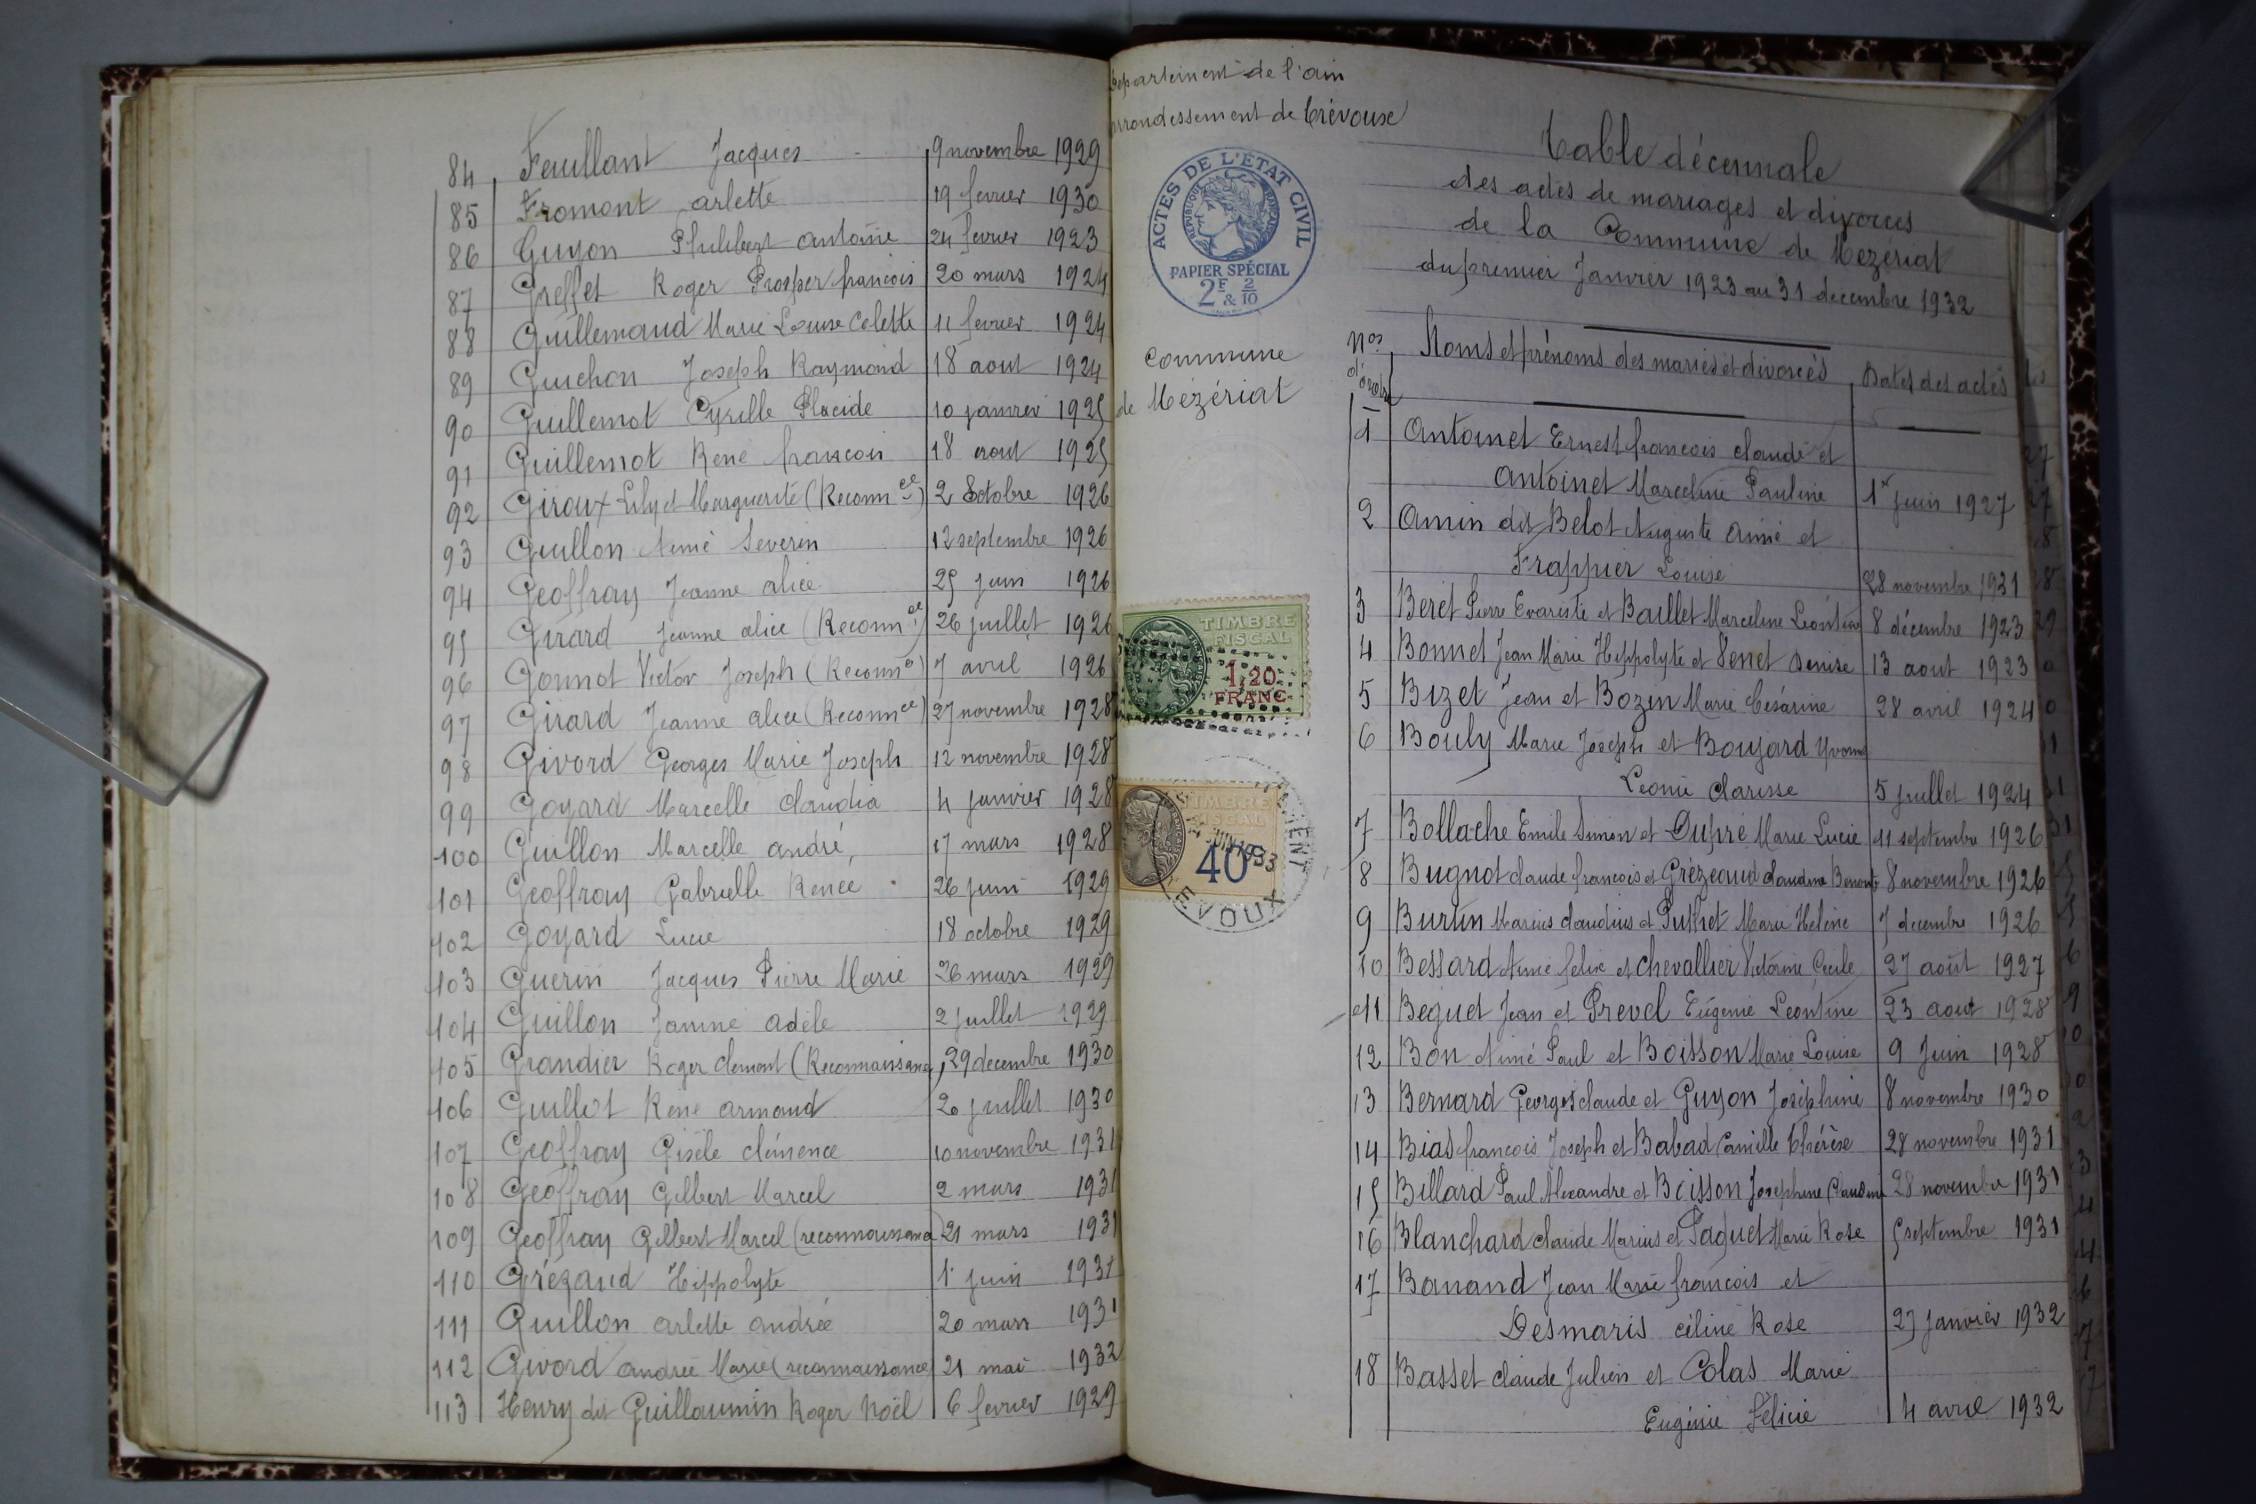 84 Feuillant Jacques 9 novembre 1929
85 Fromont arlette 19 fevrier 1930
86 Guyon Philibert antoine 24 fevrier 1923
87 Greffet Roger Prosper francois 20 mars 1924
88 Guillemaud Marie Louise Colette 11 fevrier 1924
89 Guichon Joseph Raymond 18 aout 1924
90 Guillemot Cyrille Placide 10 janvier 1925
91 Guillemot René francois 18 aout 1925
92 Giroux Lily et Marguerite (Reconnce) 2 Octobre 1926
93 Guillon Aimé Severin 12 septembre 1926
94 Geoffray Jeanne alice 25 juin 1926
95 Girard Jeanne alice (Reconnce) 26 juillet 1926
96 Gonnot Victor Joseph (Reconne) 7 avril 1926
97 Girard Jeanne alice (Reconnce) 27 novembre 1928
98 Givord Georges Marie Joseph 12 novembre 1928
99 Goyard Marcelle Claudia 4 janvier 1928
100 Guillon Marcelle andré, 17 mars 1928
101 Geoffray Gabrielle Renée 26 juin 1929
102 Goyard Lucie 18 octobre 1929
103 Guerin Jacques Pierre Marie 26 mars 1929
104 Guillon Janine adèle 2 juillet 1929
105 Grandier Roger clement (Reconnaissance) 29 decembre 1930
106 Guillot René armand 20 juillet 1930
107 Geoffray Gisèle clémence 10 novembre 1931
108 Geoffray Gilbert Marcel 2 mars 1931
109 Geoffray Gilbert Marcel (reconnaissance) 21 mars 1931
110 Grézaud Hippolyte 1r juin 1931
111 Guillon arlette andrée 20 mars 1931
112 Givord andrée Marie (reconnaissance) 21 mai 1932
113 Henry dit Guillaumin Roger Noël 6 fevrier 1929
Departement de l'ain
arrondissement de Trévoux
ACTES DE L'ETAT CIVIL
REPUBLIQUE FRANCAISE
PAPIER SPÉCIAL
2F & 2/10
Commune
de Mézériat
TIMBRE
FISCAL
1,20
FRANC
TIMBRE
FISCAL
40c
JUIN 1933
Table décennale
des actes de mariages et divorces
de la Commune de Mézériat
du premier Janvier 1923 au 31 decembre 1932
Nos d'ordre Noms et prénoms des mariés et divorcés Dates des actes
1 Antoinet Ernest francois claude et
Antoinet Marceline Pauline 1r juin 1927
2 Amin dit Belot Auguste aimé et
Frappier Louise 28 novembre 1931
3 Beret Pierre Evariste et Baillet Marceline Léontine 8 décembre 1923
4 Bonnet Jean Marie Hippolyte et Venet Denise 13 aout 1923
5 Bizet Jean et Bozin Marie Césarine 28 avril 1924
6 Bouly Marie Joseph et Boujard Yvonne
Léonie Clarisse 5 juillet 1924
7 Bollache Emile Simon et Dupré Marie Lucie 11 septembre 1926
8 Bugnot claude francois et Grézeaud Claudine Benoite 8 novembre 1926
9 Burtin Marius claudius et Puthet Marie Hélène 7 decembre 1926
10 Bessard Aimé felix et Chevallier Victorine Cecile 27 août 1927
11 Beguet Jean et Prevel Eugénie Léontine 23 aout 1928
12 Bon Aimé Paul et Boisson Marie Louise 9 Juin 1928
13 Bernard Georges claude et Guyon Joséphine 8 novembre 1930
14 Bias francois Joseph et Babad Camille Thérèse 28 novembre 1931
15 Billard Paul Alexandre et Boisson Josephine Claudine 28 novembre 1931
16 Blanchard claude Marius et Paquet Marie Rose 5 septembre 1931
17 Banand Jean Marie francois et
Desmaris céline Rose 27 Janvier 1932
18 Basset claude Julien et Colas Marie
Eugénie Félicie 4 avril 1932